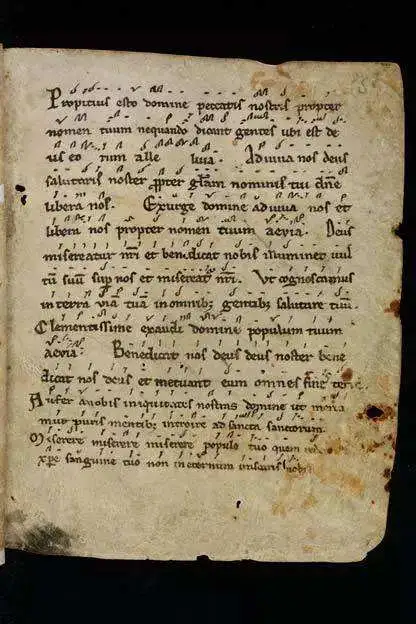 Propicius esto domine peccatis nostris propter
nomen tuum nequando dicant gentes ubi est de
us eo rum alle luia. Adiuua nos deus
salutaris noster ꝓpter gl̄am nominis tui dn̄e
libera nos. Exurge domine adiuua nos et
libera nos propter nomen tuum aeuia. Deus
misereatur nr̄i et benedicat nobis illuminet uul
tū suū sup nos et misereat nr̄i. Ut cognoscamus
in terra uiā tuā in omnibꝫ gentibꝫ salutare tuū.
Clementissime exaudi domine populum tuum
aeuia. Benedicat nos deus deus noster bene
dicat nos deus et metuant eum omnes fines terre.
Aufer a nobis iniquitates nostras domine ut merea
mur puris mentibꝫ introire ad sancta sanctorum.
Miserere miserere miserere populo tuo quem
xp̄e sanguine tuo non in eternum